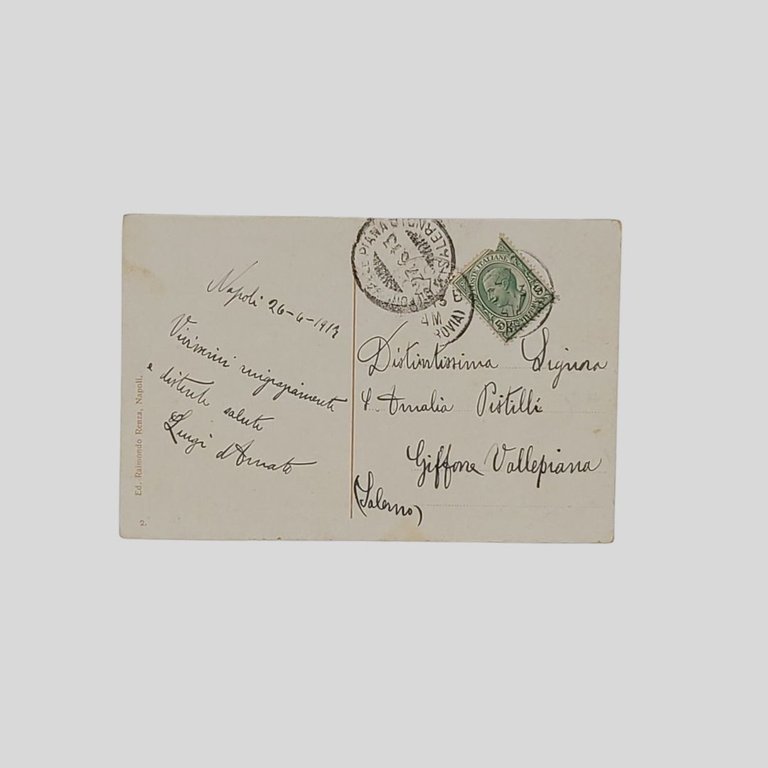 Napoli 26-6-1912
Vivissimi ringraziamenti
e distinti saluti
Luigi d'Amato
Distintissima Signora
S. Amalia Pistilli
Giffone Vallepiana
(Salerno)
Ed. Raimondo Renza, Napoli.
2.
POSTE ITALIANE